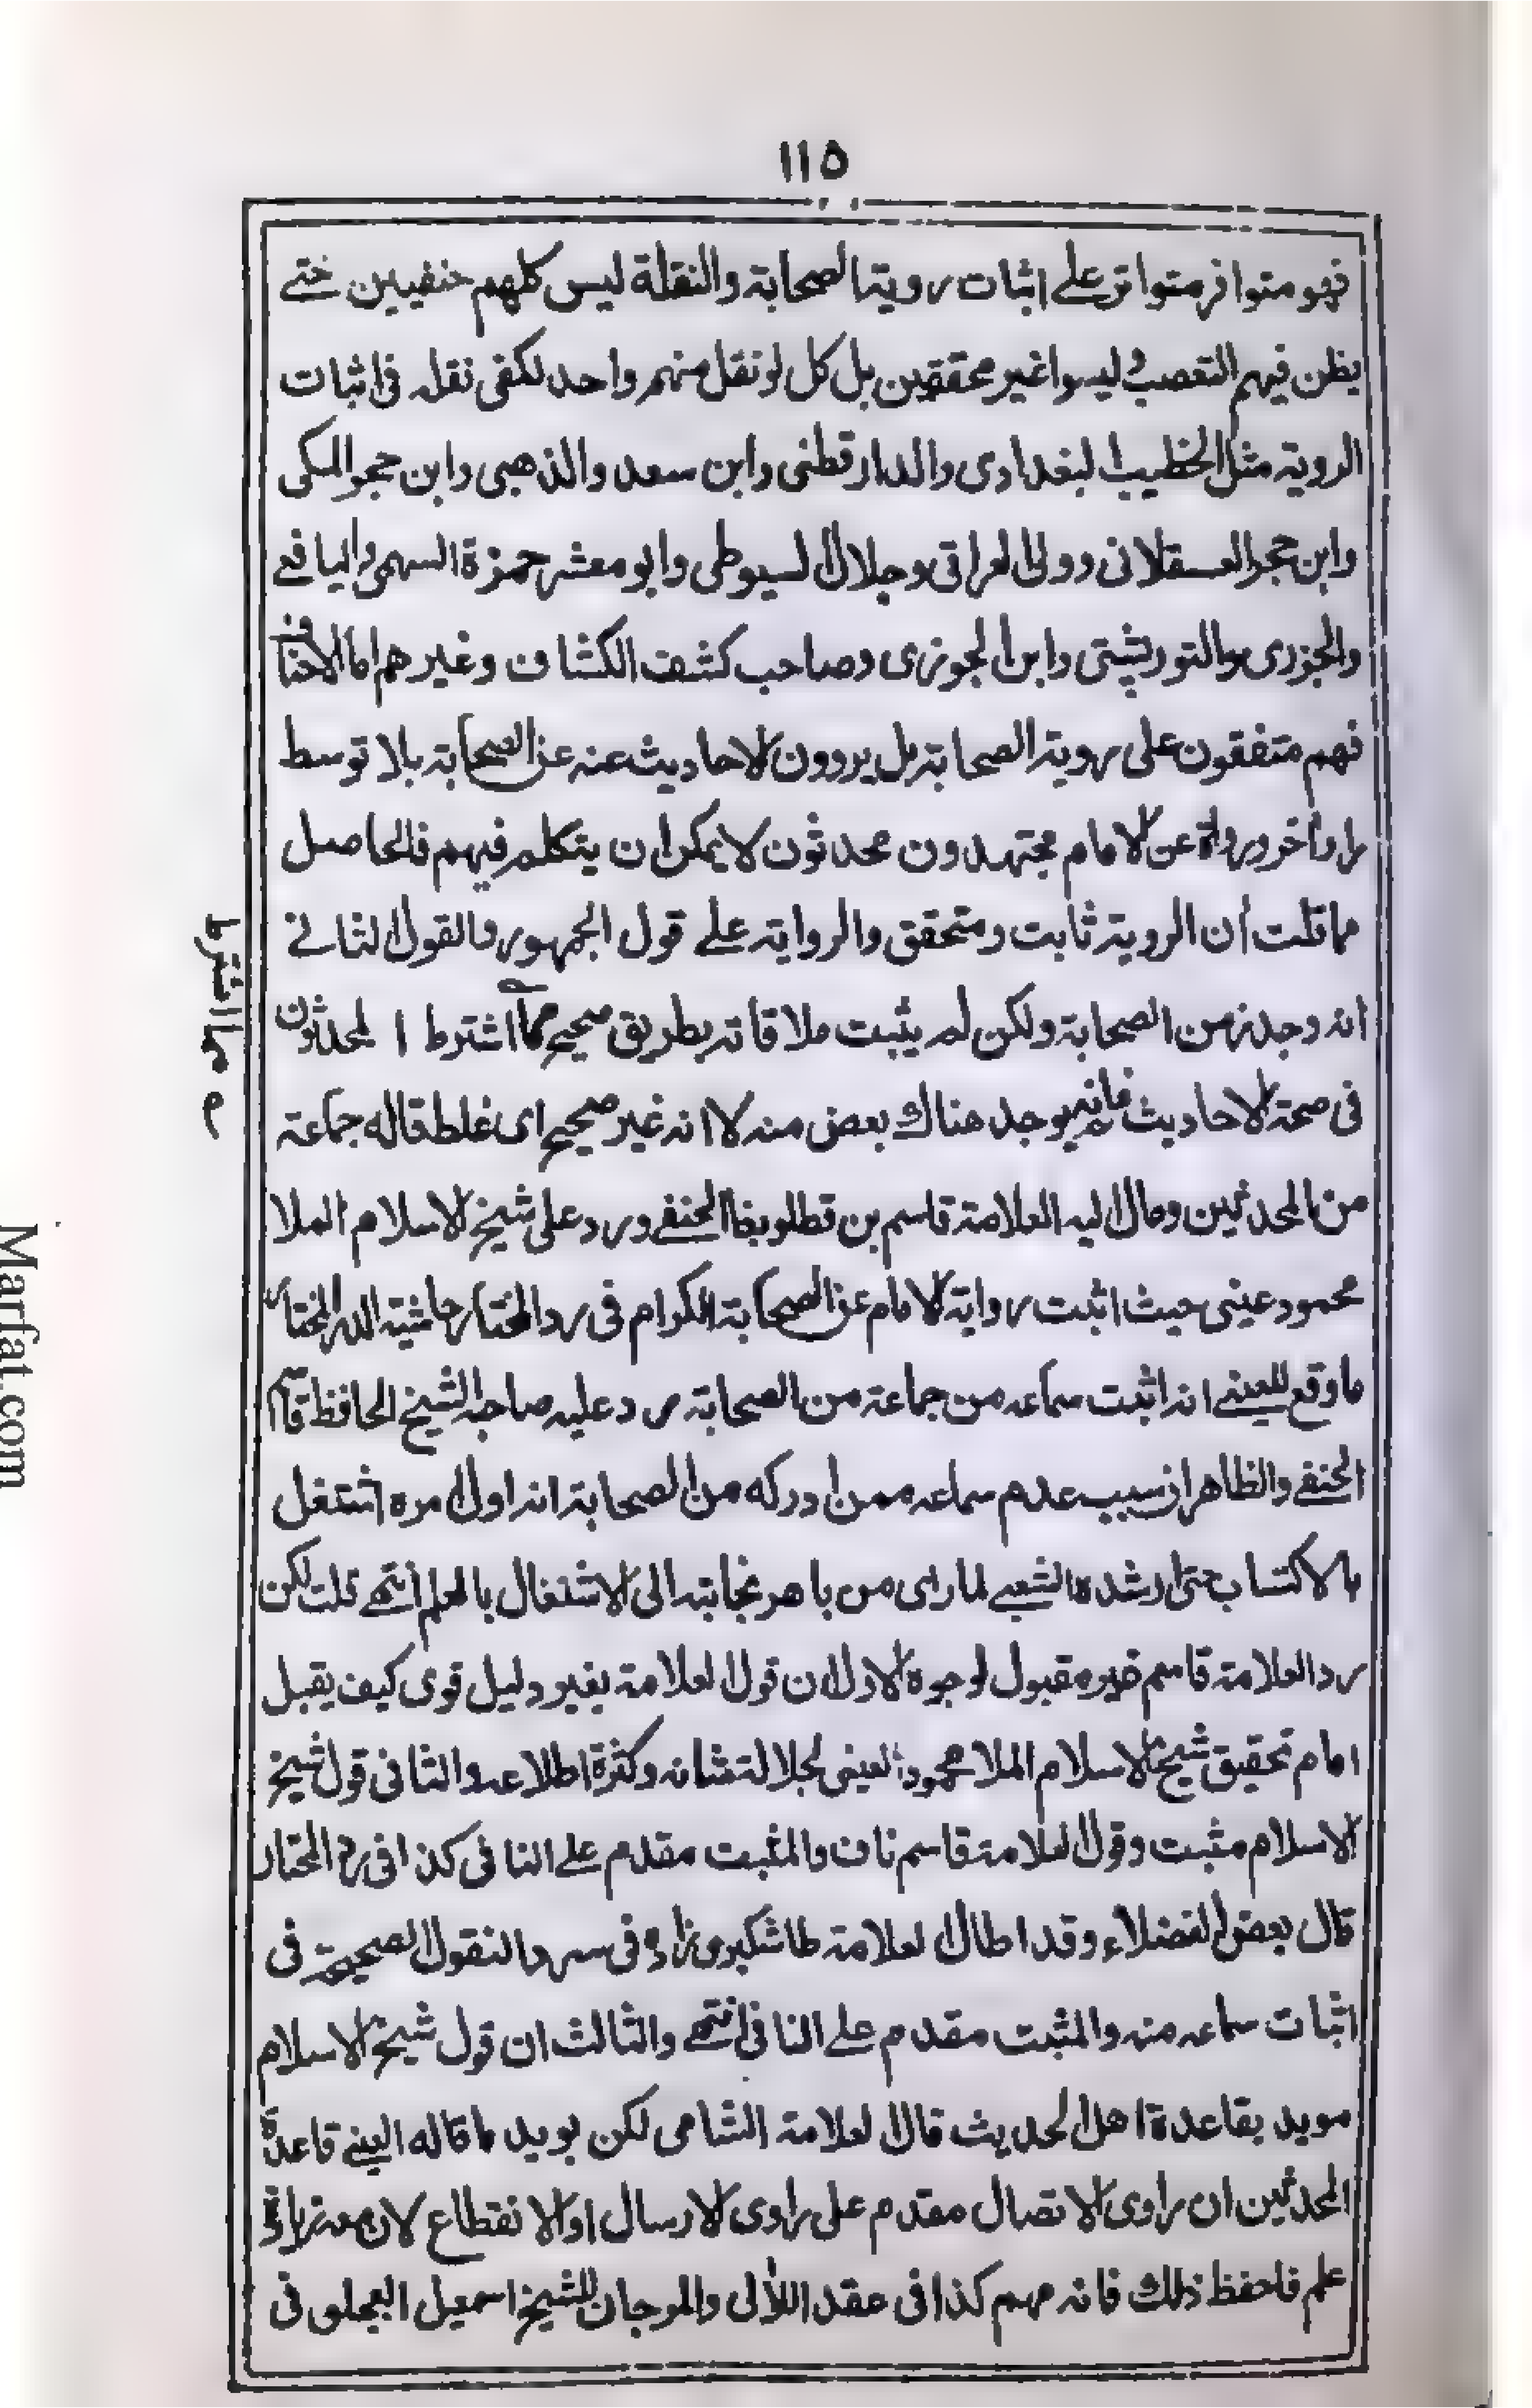 ١١٥
فهو متوافر متواتر علے اثبات روية الصحابة والنقلة ليس كلهم حنفيين ختے
يظن فيهم التعصب و ليسوا غير محققين بل كل لو نقل منهم واحد لكفى نقله فى اثبات
الروية مثل الخطيب البغدادى والدارقطنى وابن سعد والذهبى وابن حجر المكى
وابن حجر العسقلانى وولى العراقى وجلال السيوطى وابو معشر حمزة السهمى واليافعے
والجزرى والتوربشتى وابن الجوزى وصاحب كشف الكشاف وغيرهم اما الاحناف
فهم متفقون على روية الصحابة بل يروون الاحاديث عنه عن الصحابة بلا توسط
راو أخر ورواة عن الامام مجتهدون محدثون لا يمكن ان يتكلم فيهم فالحاصل
مما قلت أن الروية ثابت ومتحقق والرواية علے قول الجمهور والقول الثانے
انه وجد زمن الصحابة ولكن لم يثبت ملاقاته بطريق صحيح مما اشترط المحدثون
فى صحة الاحاديث فانه يوجد هناك بعض منه لا انه غير صحيح اى غلط قاله جماعة
من المحدثين ومال اليه العلامة قاسم بن قطلوبغا الحنفے ورد على شيخ الاسلام الملا
محمود عينى حيث اثبت رواية الامام عن الصحابة الكرام فى رد المختار حاشية الدر المختار
ما وقع للعينے انه اثبت سماعه من جماعة من الصحابة رد عليه صاحبه الشيخ الحافظ قاسم
الحنفے والظاهر ان سبب عدم سماعه ممن ادركه من الصحابة انه اول مره اشتغل
بالاكتساب حتى ارشده الشعبے لما راى من باهر نجابته الى الاشتغال بالعلم انتهے قلت لكن
رد العلامة قاسم غير مقبول لوجوه الاول ان قول العلامة بغير دليل قوى كيف يقبل
امام تحقيق شيخ الاسلام الملا محمود العينى لجلالة شانه وكثرة اطلاعه والثانى قول شيخ
الاسلام مثبت وقول العلامة قاسم ناف والمثبت مقدم علے النافى كذا فى رد المختار
قال بعض الفضلاء وقد اطال العلامة طاشكبرى زاده فى سرد النقول الصحيحة فى
اثبات سماعه منه والمثبت مقدم علے النافى انتهے والثالث ان قول شيخ الاسلام
مويد بقاعدة اهل الحديث قال العلامة الشامى لكن يويد ما قاله العينے قاعدة
المحدثين ان راوى الاتصال مقدم على راوى الارسال او الانقطاع لان معه زيادة
علم فاحفظ ذلك فانه مهم كذا فى عقد اللألى والمرجان للشيخ اسمعيل العجلونى فى
مما اشترط
Marfat.com